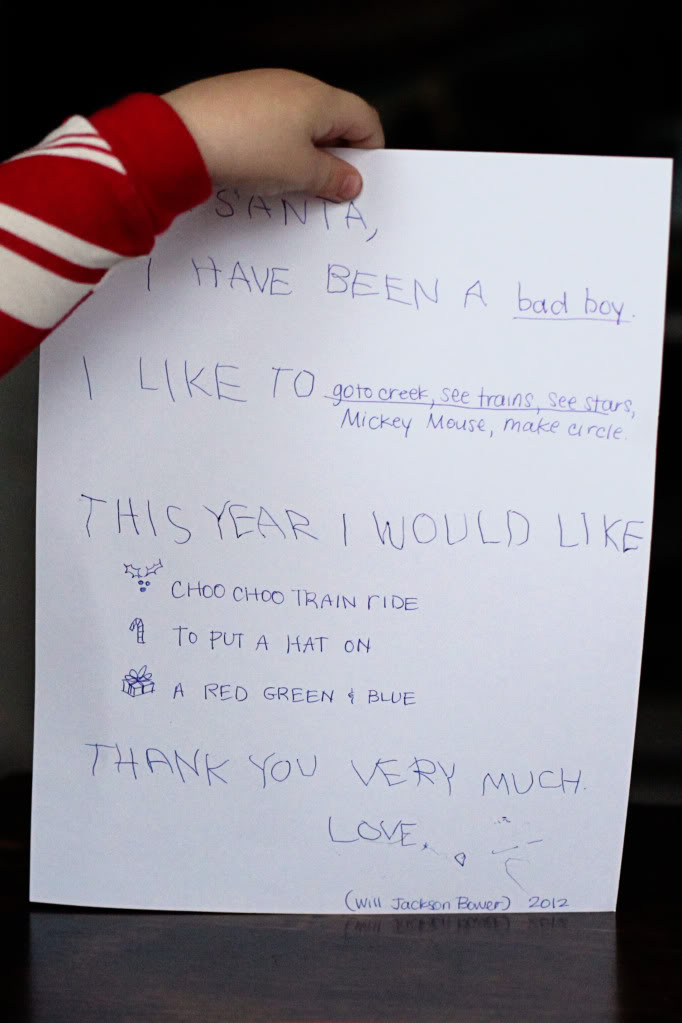 SANTA,
I HAVE BEEN A bad boy.
I LIKE TO go to creek, see trains, see stars,
Mickey Mouse, make circle.
THIS YEAR I WOULD LIKE
CHOO CHOO TRAIN RIDE
TO PUT A HAT ON
A RED GREEN & BLUE
THANK YOU VERY MUCH.
LOVE,
(Will Jackson Bower) 2012